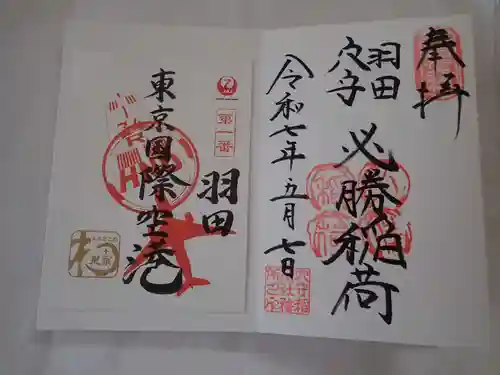 奉拝
羽田
穴守
必勝稲荷
令和七年五月七日
第一番
羽田
東京国際空港